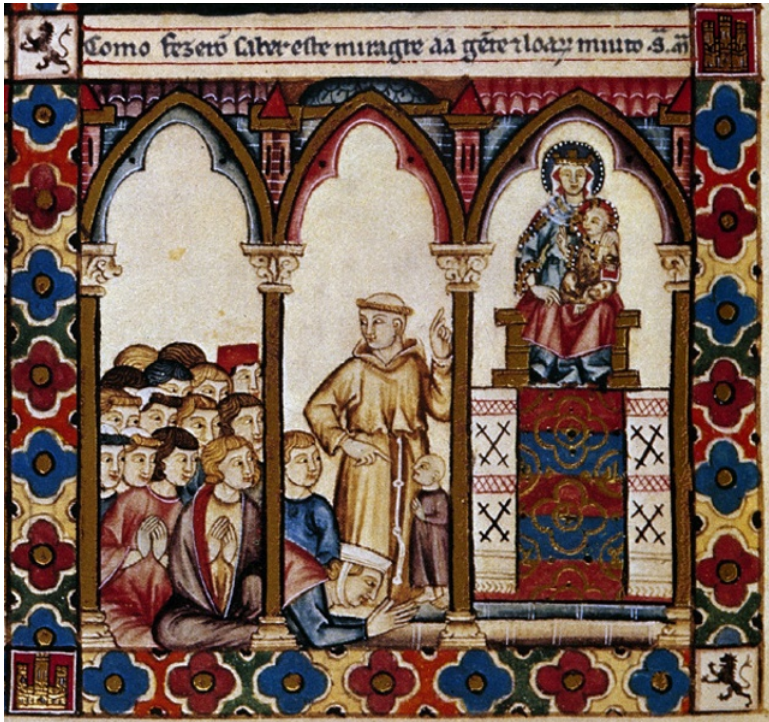 Como fezerō saber este miragre áá gēte ⁊ loarō muito .S. M̄